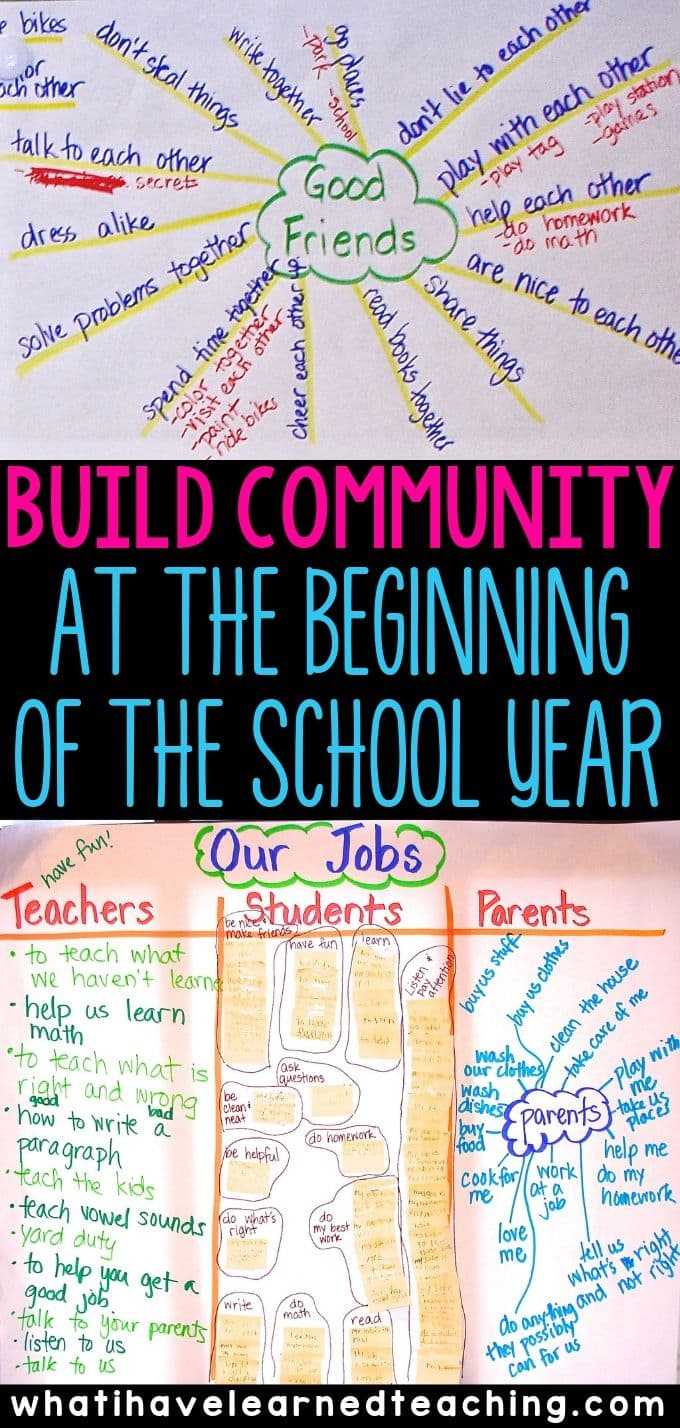 bikes
or
each other
don't steal things
write together
go places
-park
-school
don't lie to each other
play with each other
-play tag
-play station
-games
talk to each other
secrets
Good
Friends
help each other
-do homework
-do math
dress alike
are nice to each othe
solve problems together
spend time together
-color together
-visit each other
-paint
-ride bikes
cheer each other up
read books together
share things
BUILD COMMUNITY
AT THE BEGINNING
OF THE SCHOOL YEAR
Our Jobs
have fun!
Teachers
• to teach what
we haven't learne
• help us learn
math
• to teach what is
right and wrong
good bad
• how to write a
paragraph
• teach the kids
• teach vowel sounds
• yard duty
• to help you get a
good job
• talk to your parents
• listen to us
• talk to us
Students
be nice &
make friends
have fun
learn
Listen &
pay
attention
ask
questions
be
clean &
neat
do homework
be helpful
do what's
right
do
my best
work
write
do
math
read
Parents
buy us stuff
buy us clothes
clean the house
take care of me
wash
our clothes
play with
me
wash
dishes
parents
take us
places
buy
food
help me
do my
homework
cook for
me
work
at a
job
love
me
tell us
what's right
and not right
do anything
they possibly
can for us
whatihavelearnedteaching.com